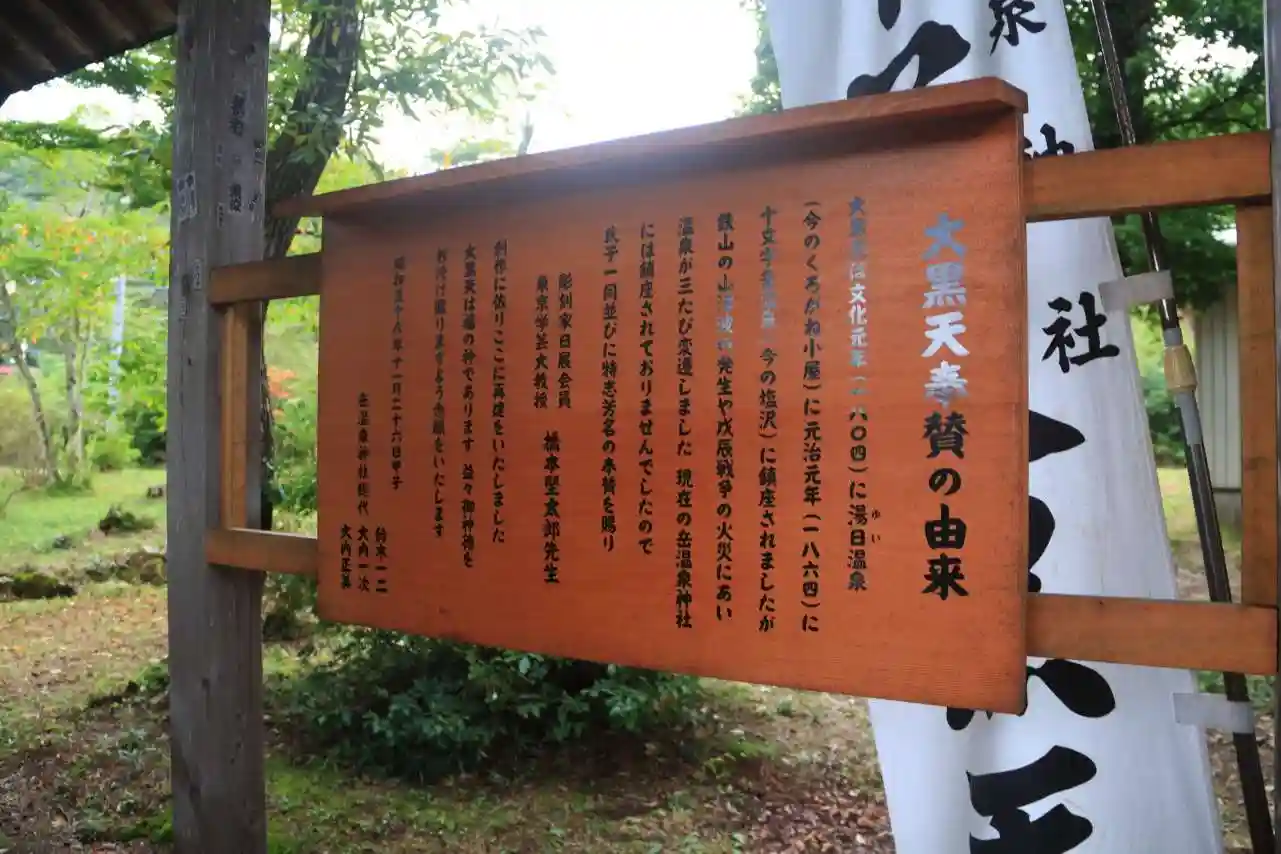 大黒天奉賛の由来
大黒天は文化元年(一八〇四)に湯日温泉
ゆい
(今のくろがね小屋)に元治元年(一八六四)に
十文字岳温泉(今の塩沢)に鎮座されましたが
鉄山の山津波の発生や戊辰戦争の火災にあい
温泉が三たび変遷しました 現在の岳温泉神社
には鎮座されておりませんでしたので
氏子一同並びに特志芳名の奉賛を賜り
彫刻家日展会員
東京学芸大教授
橋本堅太郎先生
創作に依りここに再建をいたしました
大黒天は福の神であります 益々御神福を
お授け賜りますよう念願をいたします
昭和五十八年十一月二十六日甲子
岳温泉神社総代
鈴木一二
大内一次
大内正美
泉
神
社
天